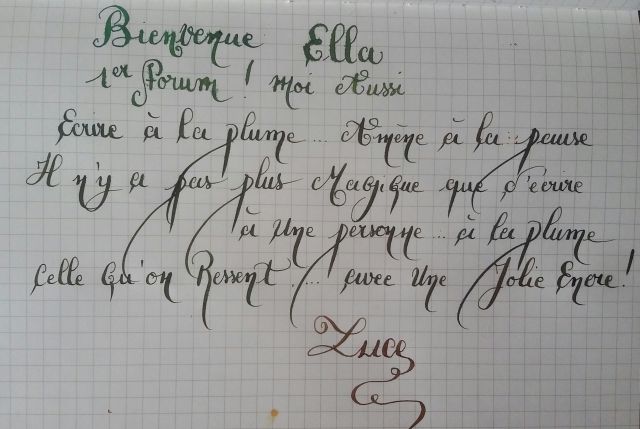 Bienvenue Ella
1er Forum ! Moi Aussi
Ecrire à la plume ... Amène à la pause
Il n'y a pas plus Magique que d'écrire
à Une personne ... à la plume
Celle Qu'on Ressent ! ... avec Une Jolie Encre !
Luce